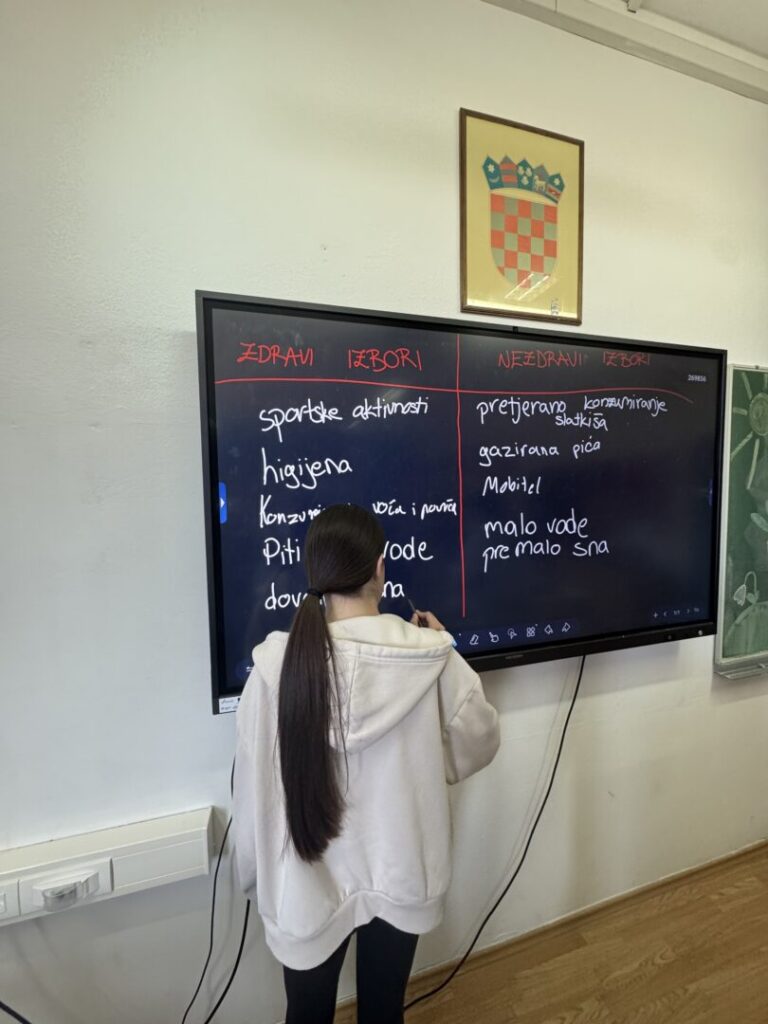 ZDRAVI IZBORI
sportske aktivnosti
higijena
voća i povrća
Piti vode
NEZDRAVI IZBORI
269856
pretjerano konzumiranje
slatkiša
gazirana pića
Mobitel
malo vode
premalo sna